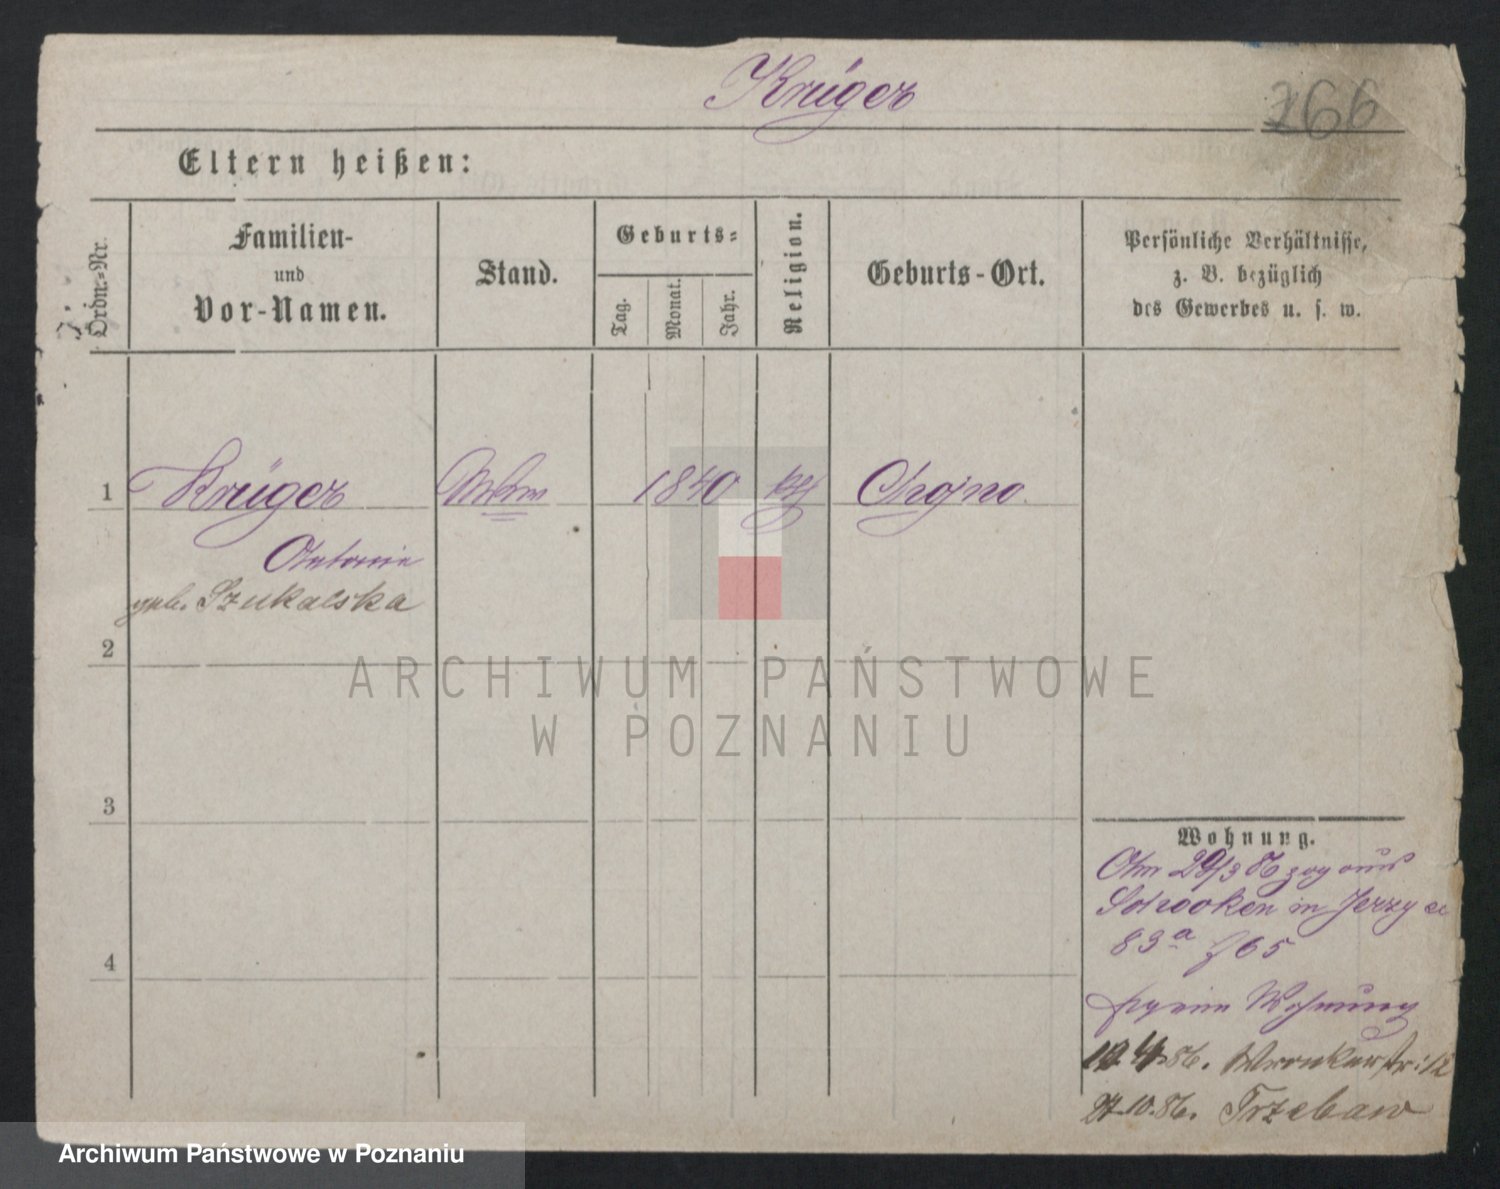 Krüger
766
Eltern heißen:
Ordn.-Nr.
Familien-
und
Vor-Namen.
Stand.
Geburts-
Tag.
Monat.
Jahr.
Religion.
Geburts-Ort.
Persönliche Verhältnisse,
z. B. bezüglich
des Gewerbes u. s. w.
1 Krüger 1840 Chojno
Antonie
geb. Szukalska
2
ARCHIWUM PAŃSTWOWE
W POZNANIU
3
4
Wohnung.
Am 29/3 86 zog aus
Schocken in Jerzyce
83a
Wohnung
4.86. Wronkerstr: 12
27.10.86. Trzebaw
Archiwum Państwowe w Poznaniu